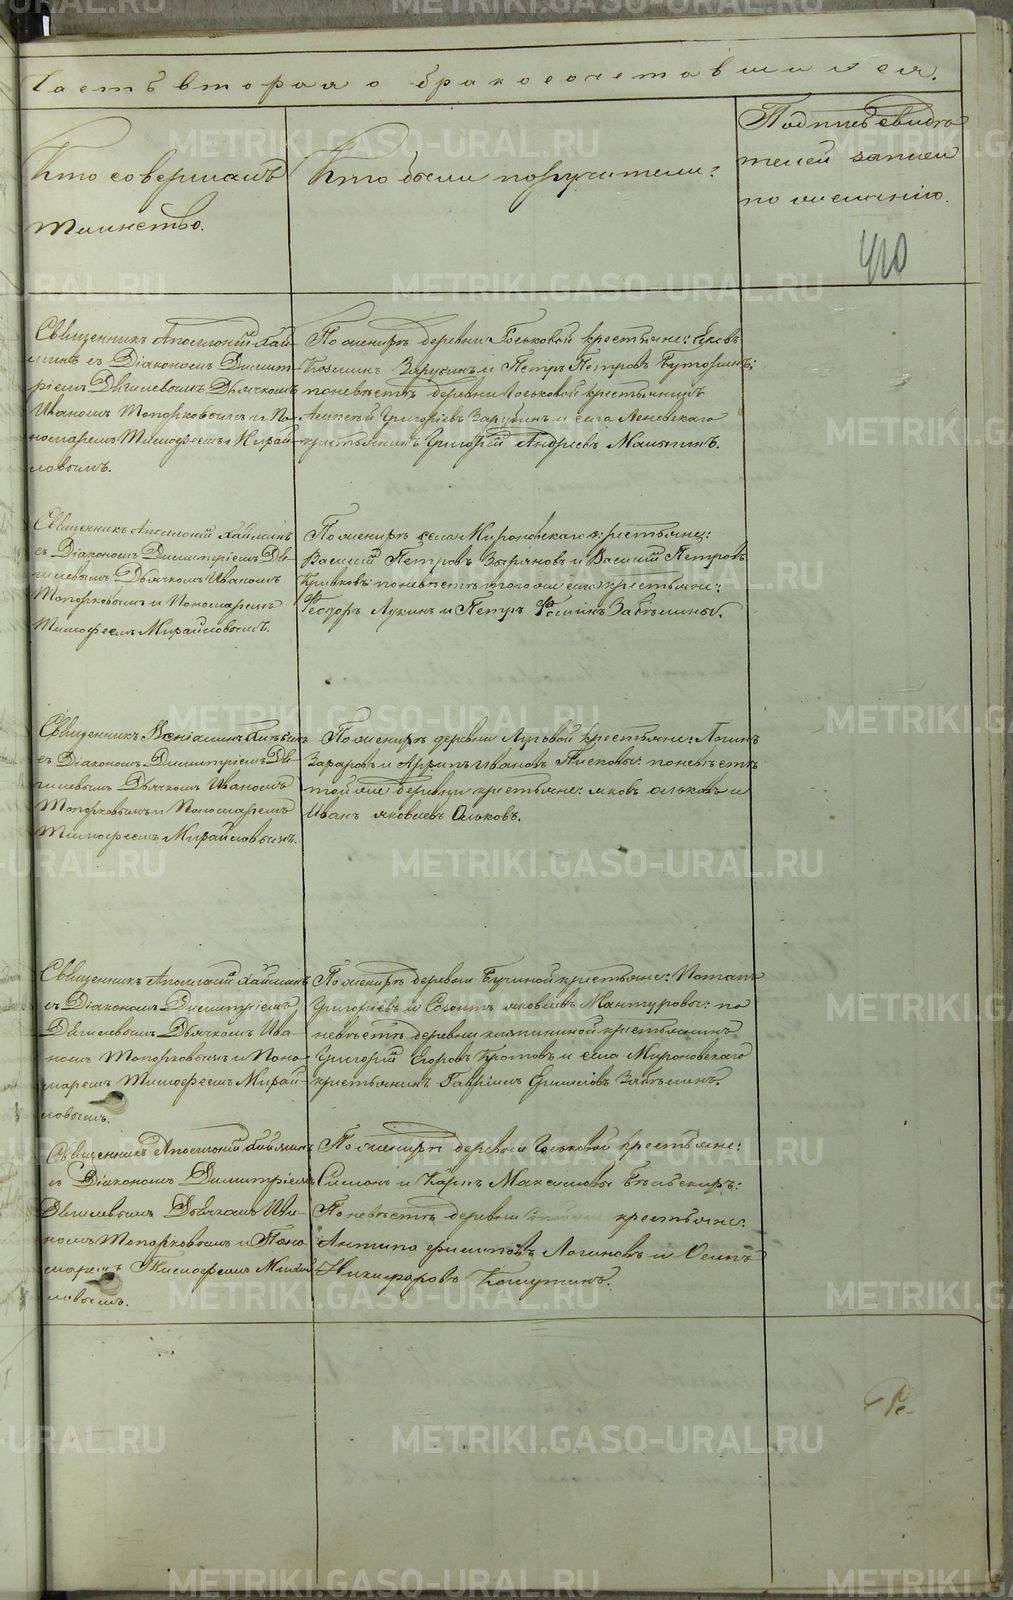 Часть вторая о бракосочетавшихся.
Кто совершалъ
таинство.
Кто были поручители?
Подпись свидѣ-
телей записи
по желанію.
410
Священникъ Аполлоній Хай-
минъ съ Діакономъ Димит-
ріемъ Дѣчкомъ
Иваномъ Топорковымъ и По-
номаремъ Тимофеемъ Михай-
ловымъ.
По женихѣ деревни Госьковой крестьяне: Яковъ
Козминъ Зарубинъ и Петръ Петровъ Буторинъ;
по невѣстѣ деревни Госьковой крестьянинъ
Алексѣй Григорьевъ Зарубинъ и села Леневскаго
крестьянинъ Григорій Андреевъ Малыгинъ.
Священникъ Аполлоній Хайминъ
съ Діакономъ Димитріемъ
Дьячкомъ Иваномъ
Топорковымъ и Пономаремъ
Тимофеемъ Михайловымъ.
По женихѣ села Мироновскаго крестьяне:
Василій Петровъ Зыряновъ и Василій Петровъ
Кривковъ: по невѣстѣ того же села крестьяне:
Феодоръ Лукинъ и Петръ Фоминъ Забѣлины.
Священникъ Веніаминъ
съ Діакономъ Димитріемъ
Дьячкомъ Иваномъ
Топорковымъ и Пономаремъ
Тимофеемъ Михайловымъ.
По женихѣ деревни Луговой крестьяне: Логинъ
Захаровъ и Архипъ Ивановъ Писковы: по невѣстѣ
той же деревни крестьяне: Яковъ Ольковъ и
Иванъ Яковлевъ Ольковъ.
Священникъ Аполлоній Хайминъ
съ Діакономъ Димитріемъ
Дьячкомъ Ива-
номъ Топорковымъ и Поно-
маремъ Тимофеемъ Михай-
ловымъ.
По женихѣ деревни Бучиной крестьяне: Потапъ
Григорьевъ и Созонтъ Яковлевъ Мантуровы: по
невѣстѣ деревни крестьянинъ
Григорій Егоровъ Кротовъ и села Мироновскаго
крестьянинъ Гавріилъ Ермиловъ Забѣлинъ.
Священникъ Аполлоній Хайминъ
съ Діакономъ Димитріемъ
Дьячкомъ Ива-
номъ Топорковымъ и Поно-
маремъ Тимофеемъ Михай-
ловымъ.
По женихѣ деревни Госьковой крестьяне:
Симонъ и Карпъ Максимовы
По невѣстѣ деревни крестьяне:
Антипа Филиповъ Логиновъ и Осипъ
Никифоровъ